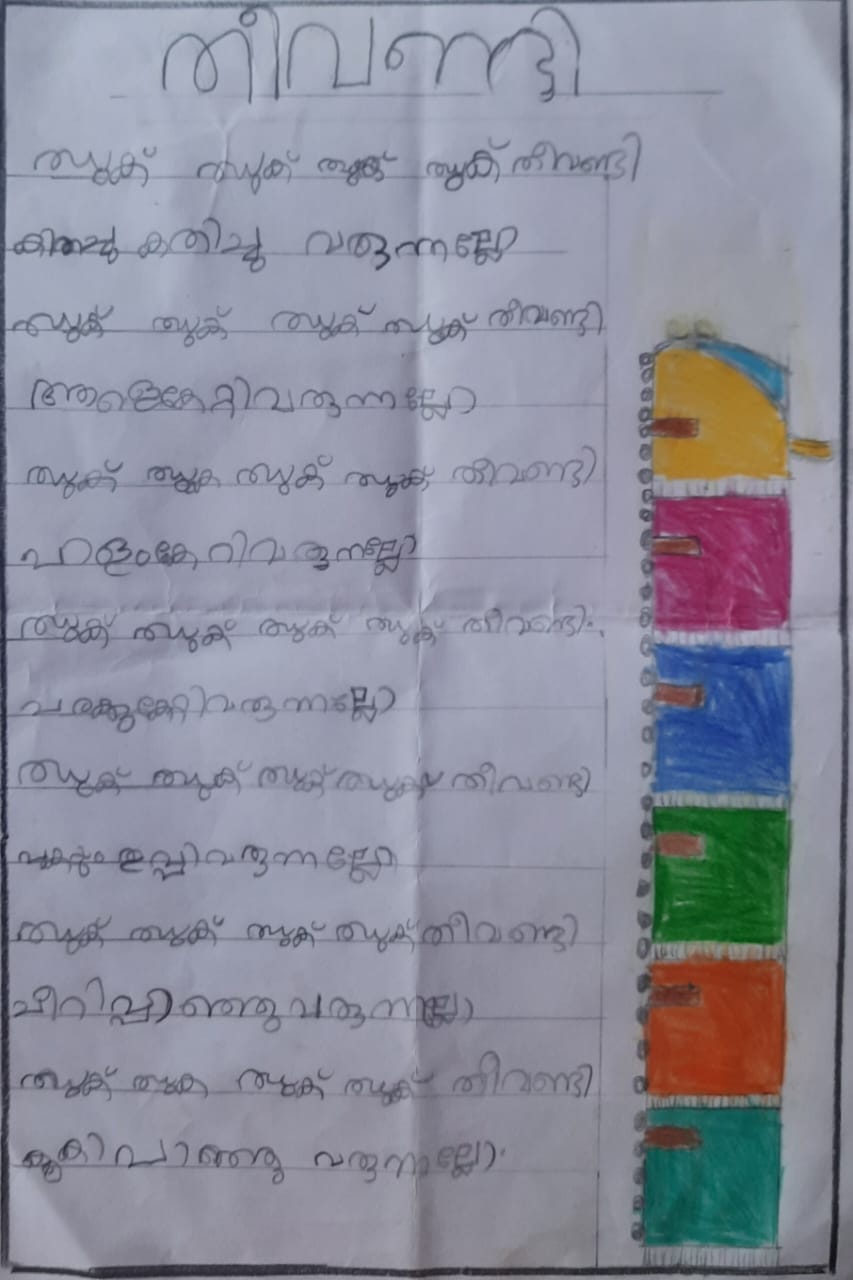 തീവണ്ടി
ഝുക് ഝുക് ഝുക് ഝുക് തീവണ്ടി
കിതച്ചു കുതിച്ചു വരുന്നല്ലോ
ഝുക് ഝുക് ഝുക് ഝുക് തീവണ്ടി
ആളെകേറ്റിവരുന്നല്ലോ
ഝുക് ഝുക ഝുക് ഝുക് തീവണ്ടി
പാളംകേറിവരുന്നല്ലോ
ഝുക് ഝുക് ഝുക് ഝുക് തീവണ്ടി.
ചരക്കുകേറ്റിവരുന്നല്ലോ
ഝുക് ഝുക് ഝുക് ഝുക് തീവണ്ടി
പുകയും തുപ്പിവരുന്നല്ലോ
ഝുക് ഝുക് ഝുക് ഝുക് തീവണ്ടി
ചീറിപ്പാഞ്ഞുവരുന്നല്ലോ
ഝുക് ഝുക ഝുക് ഝുക് തീവണ്ടി
കൂകിപാഞ്ഞു വരുന്നല്ലോ.